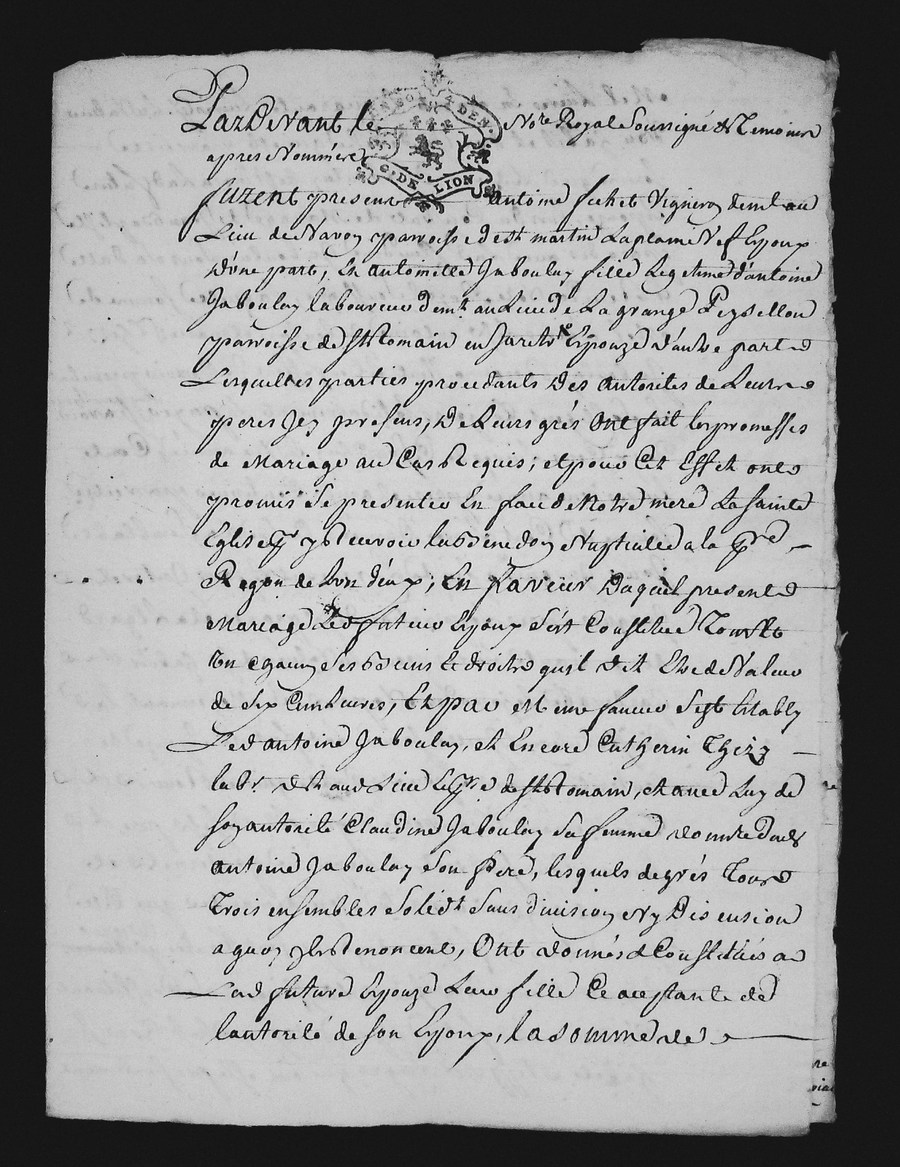 Pardevant le Notre Royal Soussigné & Temoins
apres Nommés
G. DE LION
furent presents antoine fichet Vigneron demt au
Lieu de Navoy parroisse de st martin Laplaine Nef Epoux
D'une part, Et antoinette Jaboulay fille Legetime d'antoine
Jaboulay laboureur demt au Lieu de La grange Peysellon
parroisse de st Romain en Jarets Epouze D'autre part
Lesquelles parties procedants Des autorites de Leurs
peres Icy presens, De Leurs grés Ont fait les promesses
de Mariage au Cas Requis; et pour Cet Effet onts
promis Se presenter En face de Notre mere La Sainte
Eglise pr y Recevoir la Benedon Nuptialle a la pre
Reqon de Lun d'eux; En faveur Duquel present
Mariage Led futeur Epoux S'est Constitué Tous
Un Chacuns Ses Biens & droits quil dit Etre de Valeur
de Six Cent Livres, Et par Meme faveur Sest Etably
Led antoine Jaboulay, et Encore Catherin Thizy
labr dt aud Lieu & pse de st Romain, et avec Luy de
son autorité Claudine Jaboulay Sa femme
antoine Jaboulay Son pere, lesquels de grés Tous
Trois ensembles Solidt Sans division Ny Discution
a quoy ils Renoncent, Ont donnés & Constitués a
Lad future Epouze Leur fille Ce aceptante de
lautorité de son Epoux, la Somme de